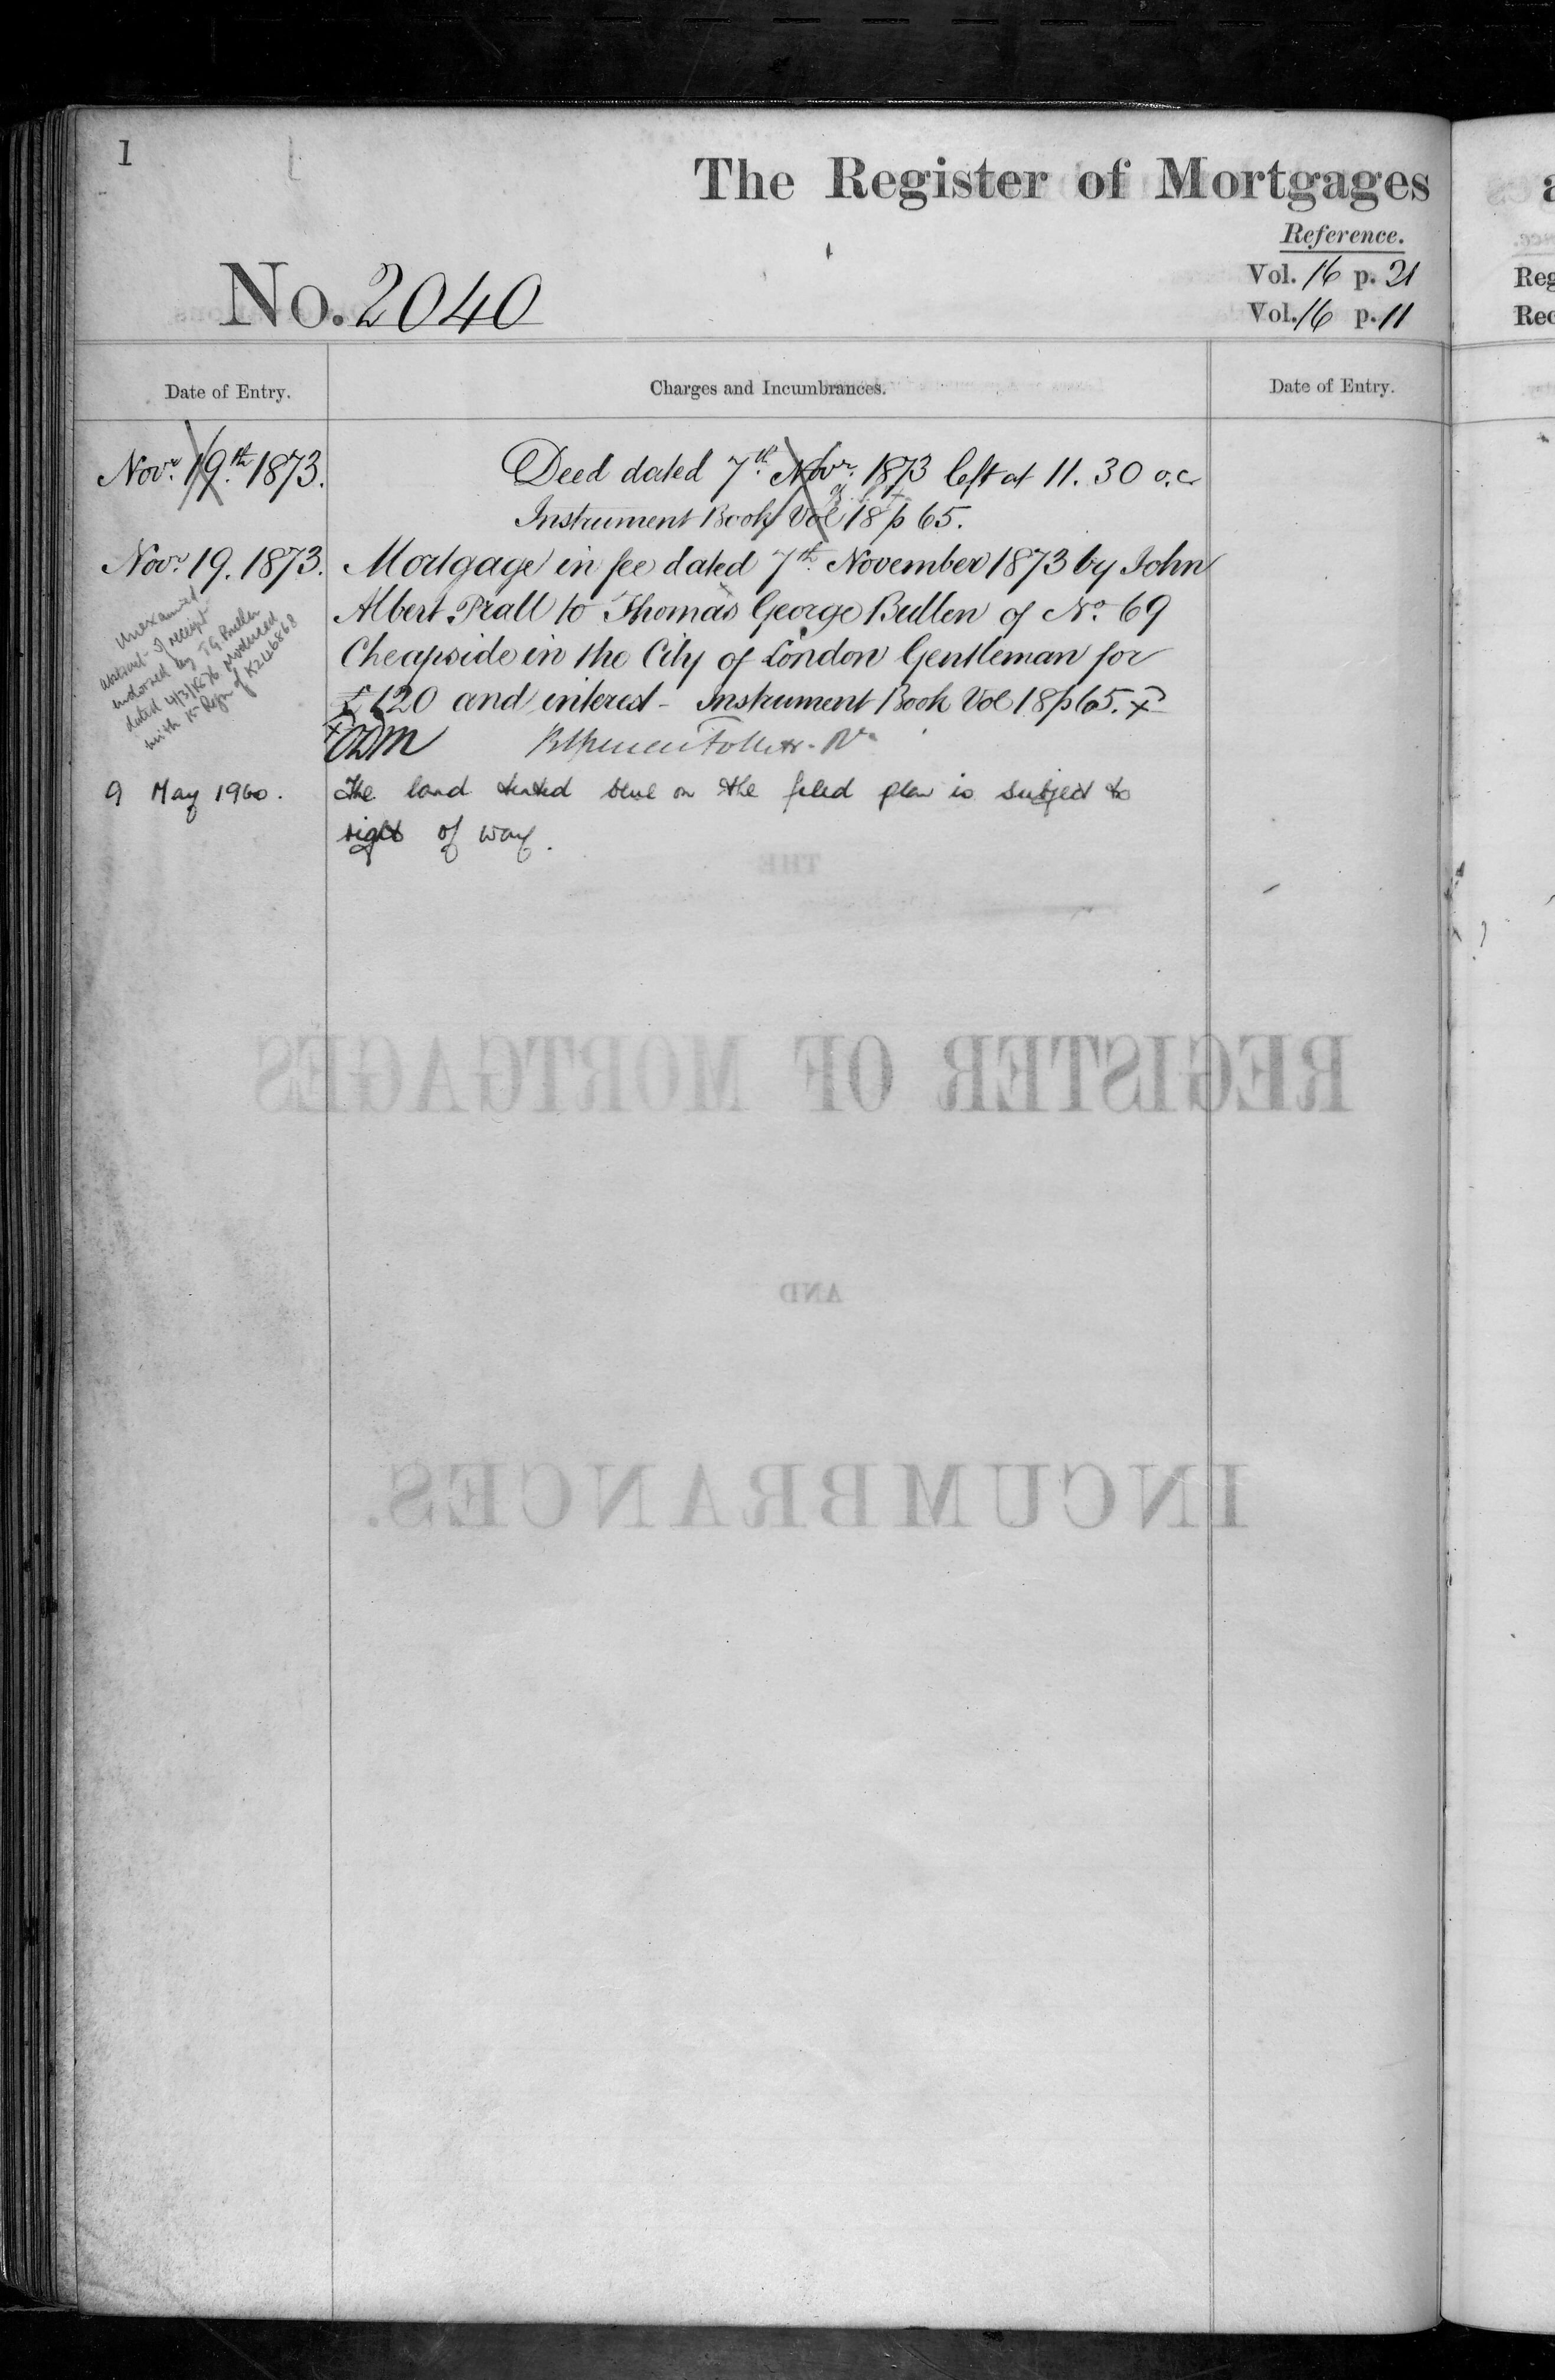 1
The Register of Mortgages
Reference.
Vol. 16 p. 21
No. 2040
Vol. 16 p. 11
Reg
Rec
Date of Entry.
Charges and Incumbrances.
Date of Entry.
Novr. 19.th 1873.
Deed dated 7th. Novr. 1873 left at 11.30 o.c.
Instrument Book Vol 18 p 65.
Novr. 19. 1873.
Mortgage in fee dated 7th. November 1873 by John
Albert Prall to Thomas George Bullen of No. 69
Cheapside in the City of London Gentleman for
£620 and interest - Instrument Book Vol 18 p 65. x
Unexamined
abstract of receipt
endorsed by T G Bullen
dated 4/3/1876 produced
with 1st Regn of K246868
9 May 1960.
The land tinted blue on the filed plan is subject to
right of way.
THE
REGISTER OF MORTGAGES
AND
INCUMBRANCES.